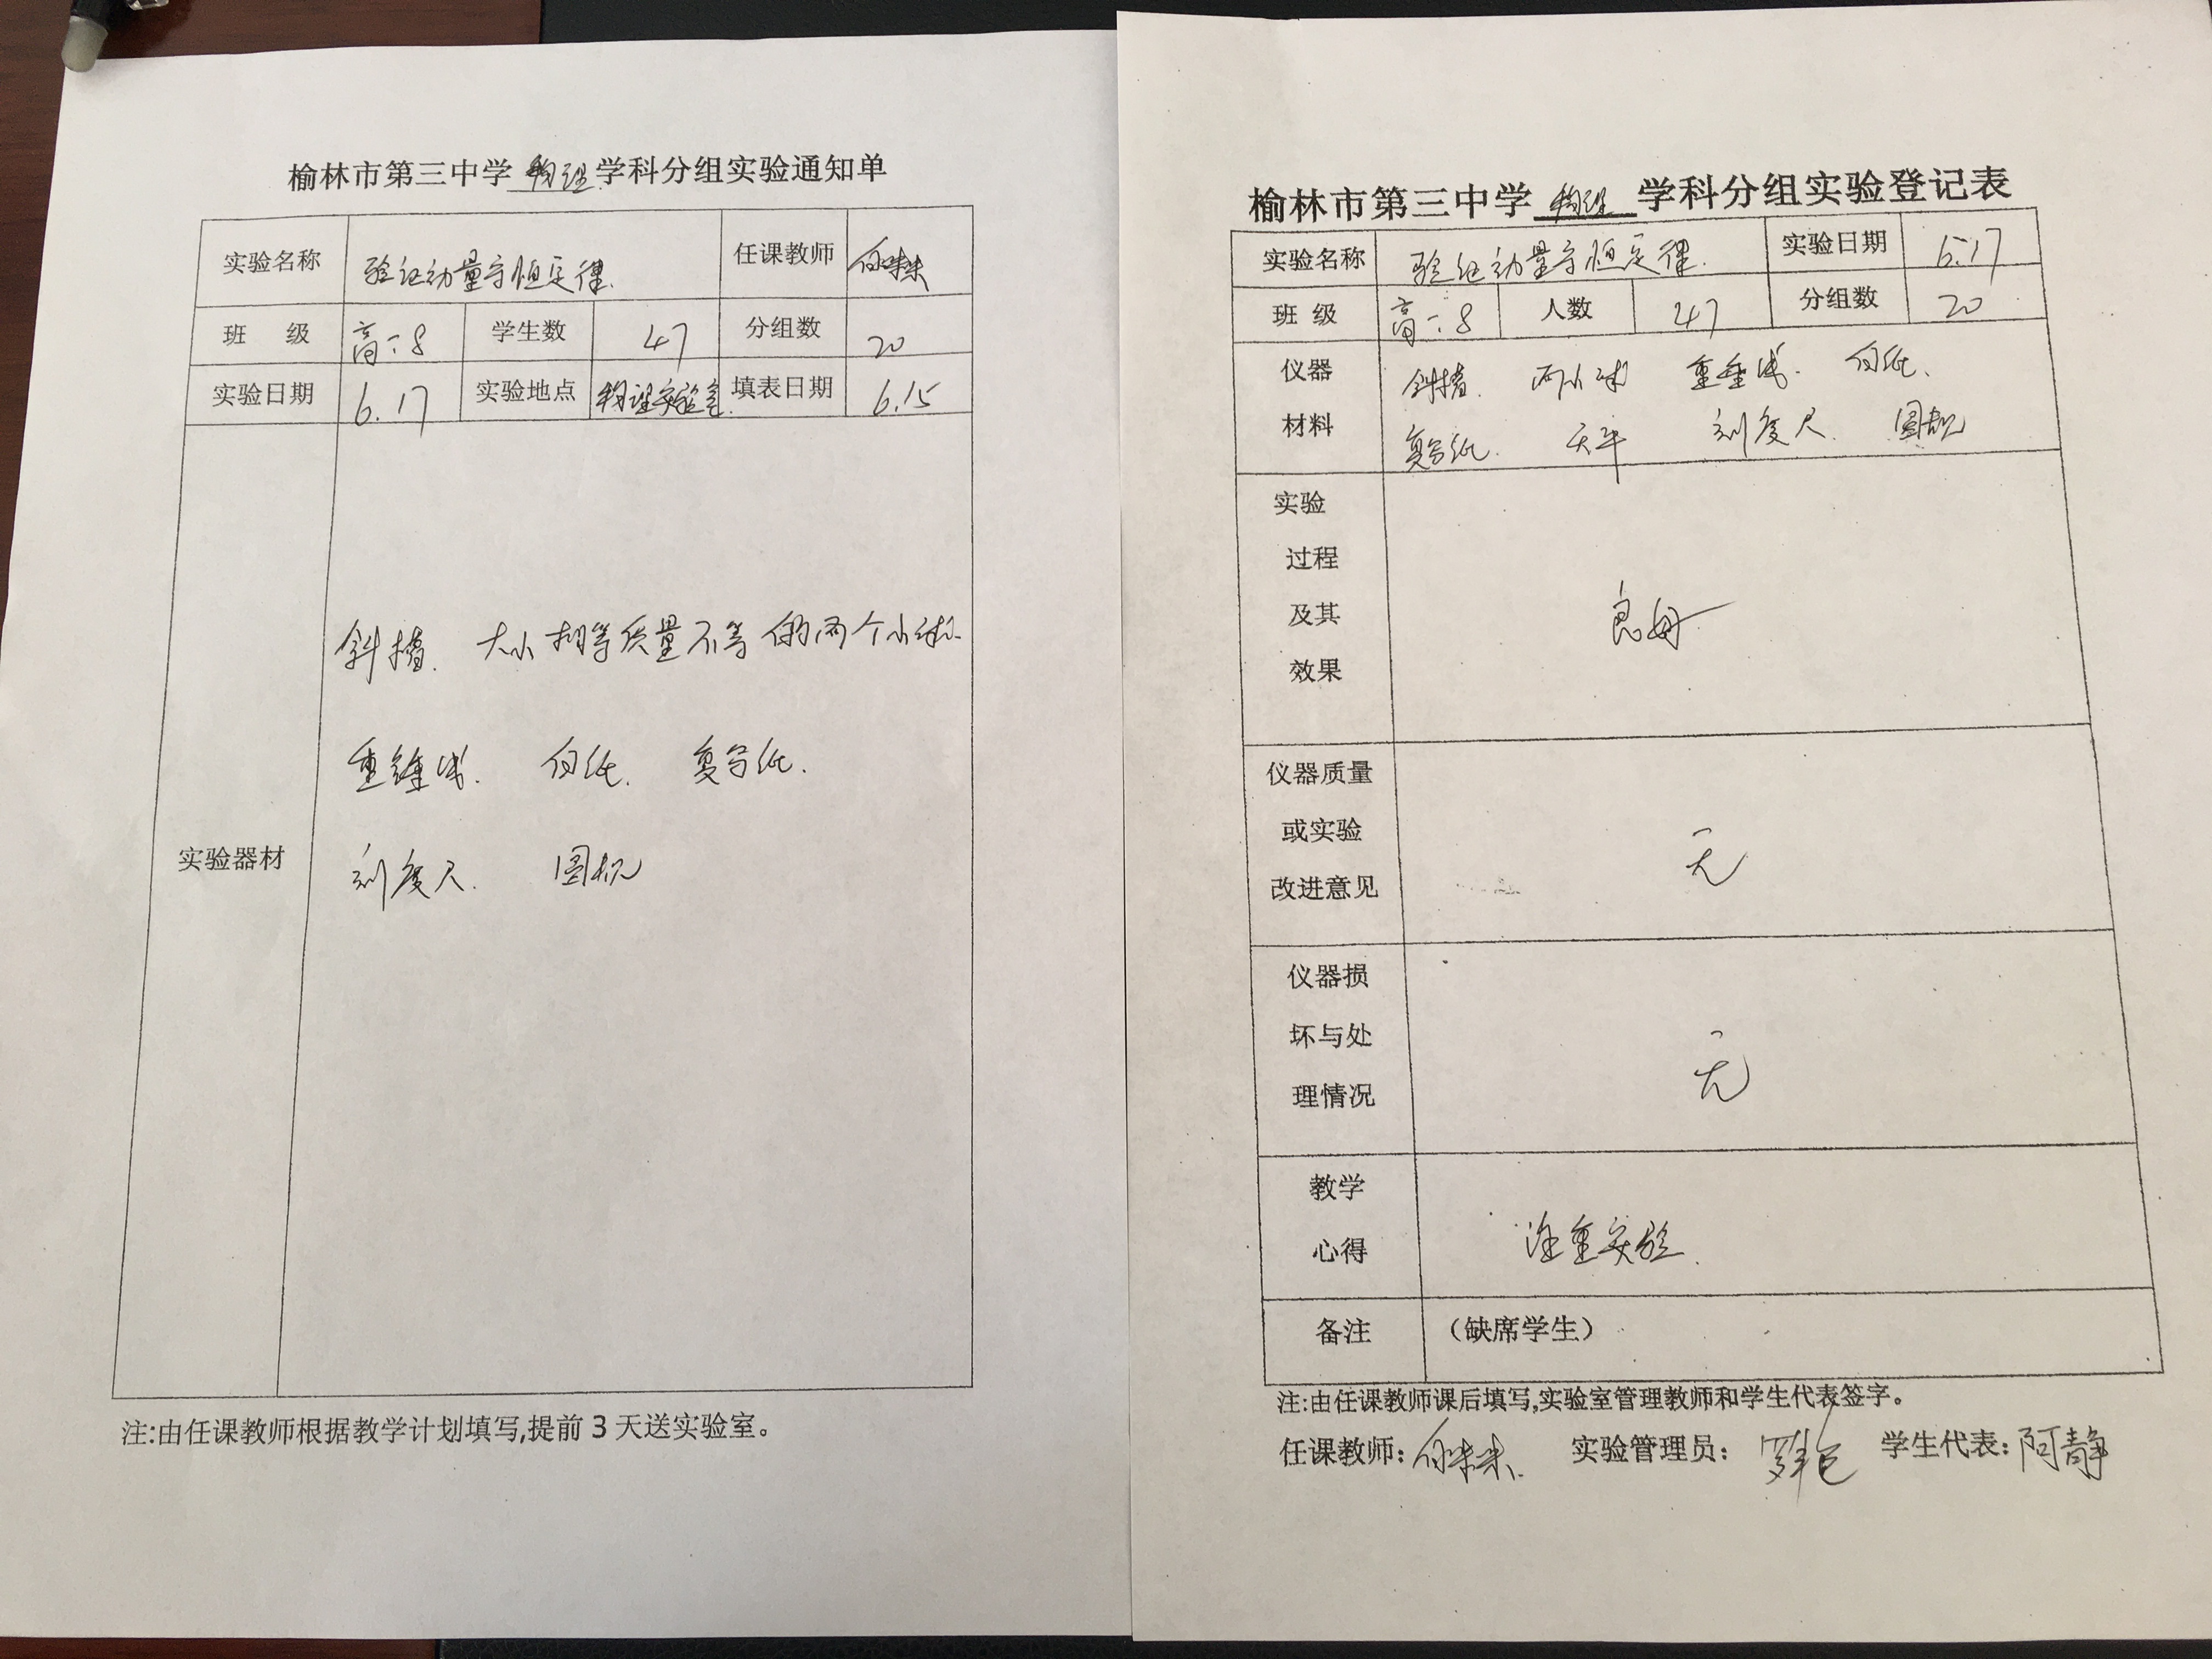 榆林市第三中学 物理 学科分组实验通知单
实验名称 验证动量守恒定律. 任课教师
班 级 高一8 学生数 47 分组数 20
实验日期 6.17 实验地点 物理实验室. 填表日期 6.15
实验器材
斜槽. 大小相等质量不等的两个小球.
重锤线. 白纸. 复写纸.
刻度尺. 圆规
注:由任课教师根据教学计划填写,提前 3 天送实验室。
榆林市第三中学 物理 学科分组实验登记表
实验名称 验证动量守恒定律. 实验日期 6.17
班 级 高一8 人数 47 分组数 20
仪器 斜槽. 两小球 重垂线. 白纸.
材料 复写纸. 天平 刻度尺. 圆规
实验
过程
及其
效果
良好
仪器质量
或实验
改进意见
无
仪器损
坏与处
理情况
无
教学
心得
注重实验.
备注 （缺席学生）
注:由任课教师课后填写,实验室管理教师和学生代表签字。
任课教师: 实验管理员: 学生代表: 阿静